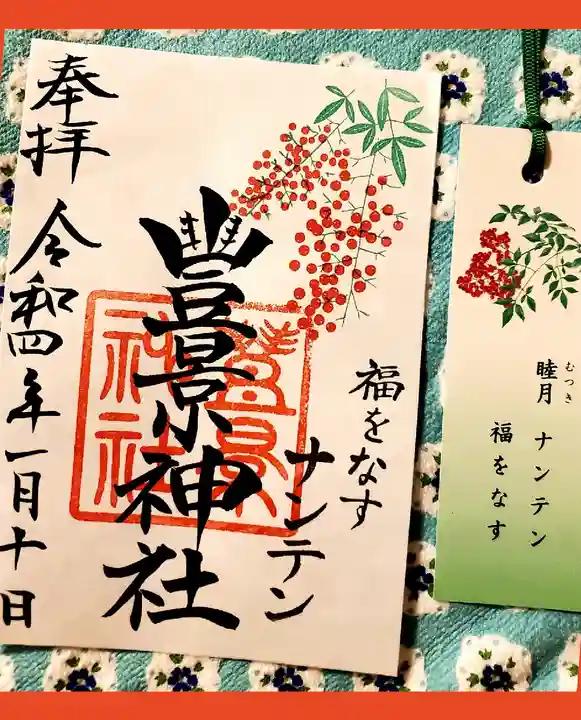 奉拝
令和四年一月十日
豊景神社
豊景
神社
福をなす
ナンテン
睦月 ナンテン
むつき
福をなす